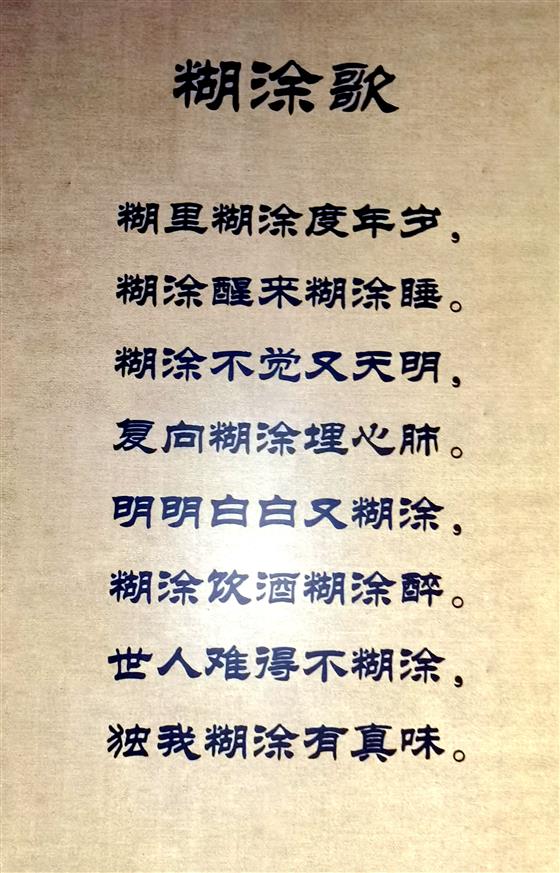 糊涂歌
糊里糊涂度年岁，
糊涂醒来糊涂睡。
糊涂不觉又天明，
复向糊涂埋心肺。
明明白白又糊涂，
糊涂饮酒糊涂醉。
世人难得不糊涂，
独我糊涂有真味。